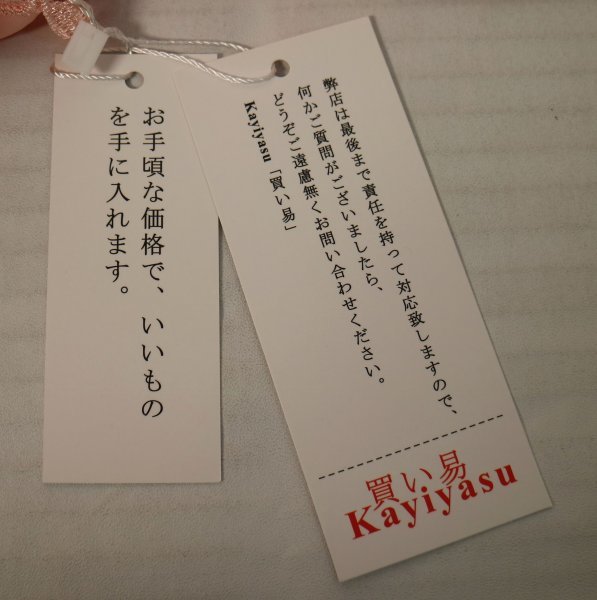 お手頃な価格で、いいもの
を手に入れます。
弊店は最後まで責任を持って対応致しますので、
何かご質問がございましたら、
どうぞご遠慮無くお問い合わせください。
Kayiyasu「買い易」
買い易
Kayiyasu